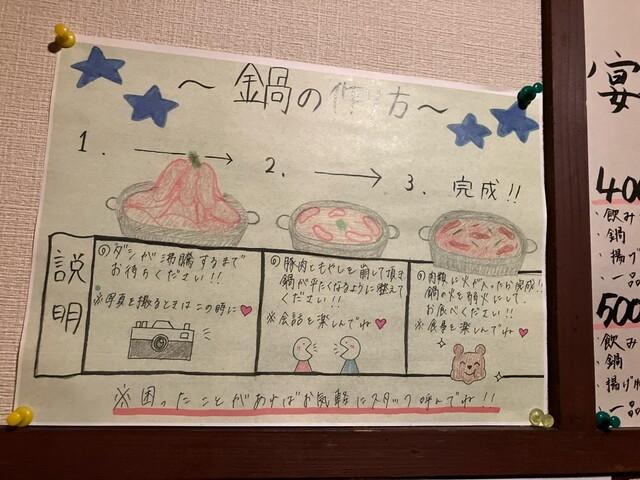 ～鍋の作り方～
1.
2.
3. 完成!!
説明
◎ダシが沸騰するまで
お待ちください!!
※写真を撮るときはこの時に♥
◎豚肉ともやしを崩して頂き
鍋が平たくなるように整えて
ください!!
※会話を楽しんでね♥
◎肉類に火が入ったら完成!!
鍋の火を弱火にして
お食べください!!
※食事を楽しんでね♥
※困ったことがあればお気軽にスタッフ呼んでね!!
宴
400
・飲み
・鍋
・揚げ
・一品
500
・飲み
・鍋
・揚げ物
・一品